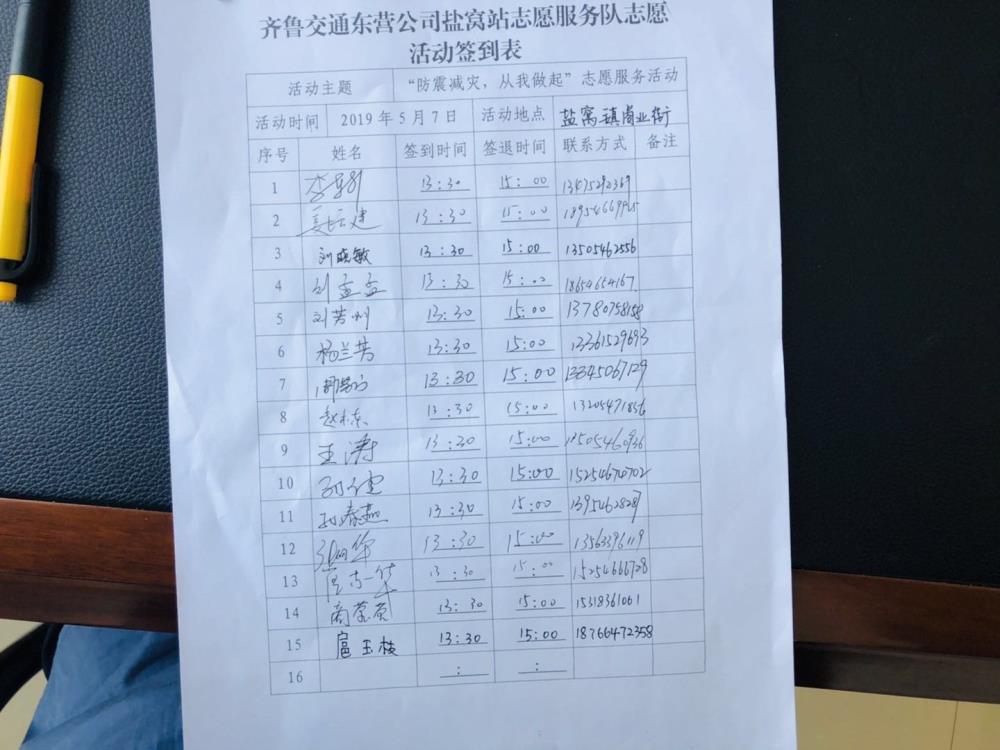 齐鲁交通东营公司盐窝站志愿服务队志愿
活动签到表
活动主题 “防震减灾，从我做起”志愿服务活动
活动时间 2019年5月7日 活动地点 盐窝镇商业街
序号 姓名 签到时间 签退时间 联系方式 备注
1 13:30 15:00 13475292369
2 13:30 15:00
3 刘晓敏 13:30 15:00 13505462556
4 刘孟孟 13:30 15:00 18654654167
5 刘芳州 13:30 15:00 13780758158
6 杨兰芳 13:30 15:00 13361529693
7 13:30 15:00 13345067129
8 赵栋 13:30 15:00 13205471856
9 王涛 13:30 15:00 13505460936
10 孙健 13:30 15:00 15254670702
11 孙春燕 13:30 15:00 13954628287
12 13:30 15:00 13563396119
13 13:30 15:00 15254666728
14 商荣负 13:30 15:00 15318361061
15 扈玉枝 13:30 15:00 18766472358
16 : :